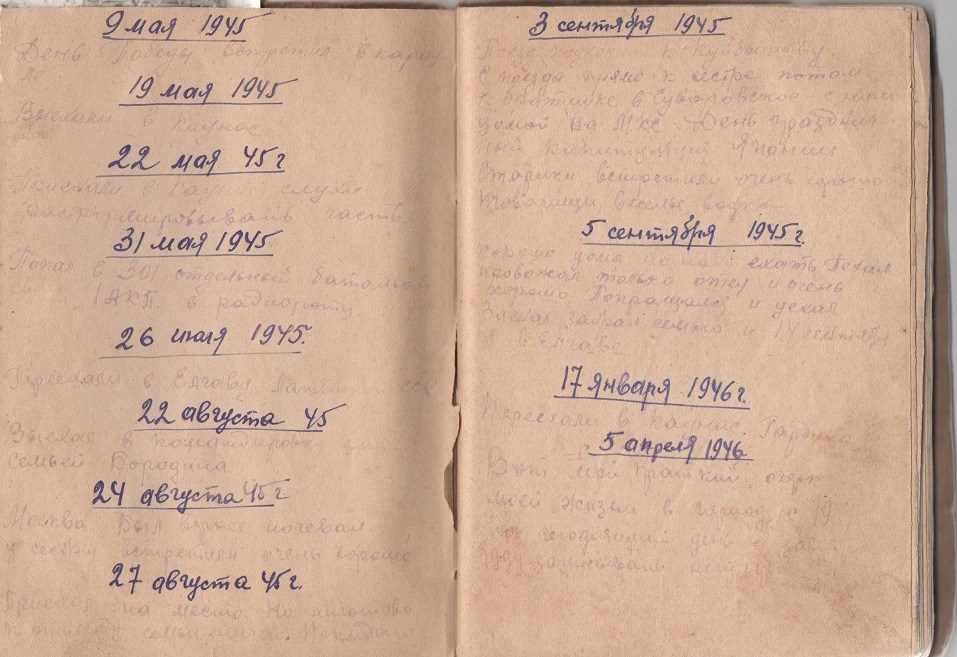 9 мая 1945
День Победы встретил в карау
ле
19 мая 1945
Выехали в Каунас
22 мая 45 г
Приехали в Каунас слухи
расформировывать часть.
31 мая 1945
Попал в 301 отдельный батальон
1 АКП. в радиороту.
26 июля 1945.
Переехали в Елгаву
22 августа 45
Выехал в командировку
семьей Бородина
24 августа 45 г
Москва Был ночевал
у сестры встретили очень хорошо
27 августа 45 г.
Приехал на место но ничотово
к семьи
3 сентября 1945
Поезд к Куйбышеву
С поезда прямо к сестре потом
к братишке в Суворовское с ним
домой на МКС. День празднич
ный капитуляция Японии
Старики встретили очень хорошо
Товарищи веселье водка
5 сентября 1945 г.
хорошо дома но ехать Поехал
провожал только отец и очень
хорошо Попращался и уехал
Заехал забрал семью и 14 сентября
Я в Елгаве
17 января 1946 г.
Переехали в Каунас.
5 апреля 1946.
Вот мой краткий очерк
моей жизни в период с 19
по сегодняшний день с
буду записывать